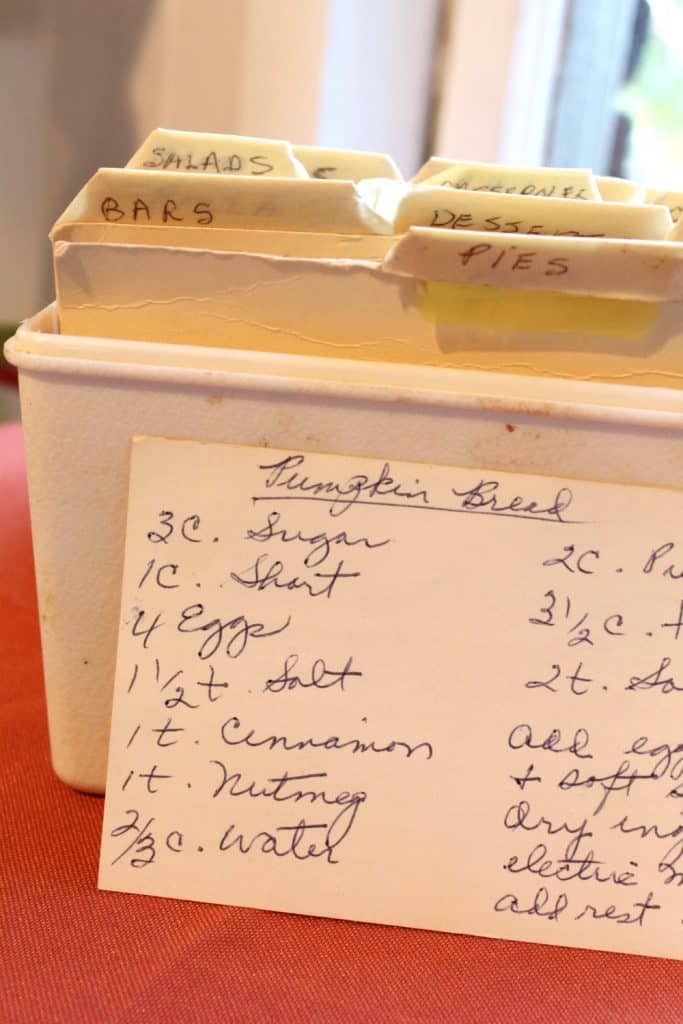 SALADS
BARS
DESSERT
PIES
Pumpkin Bread
3C. Sugar
1C. Short
4 Eggs
1 1/2 t. Salt
1t. Cinnamon
1t. Nutmeg
2/3 c. Water
2C. Pu
3 1/2 c. f
2t. So
add egg
+ soft s
dry ing
electric m
add rest